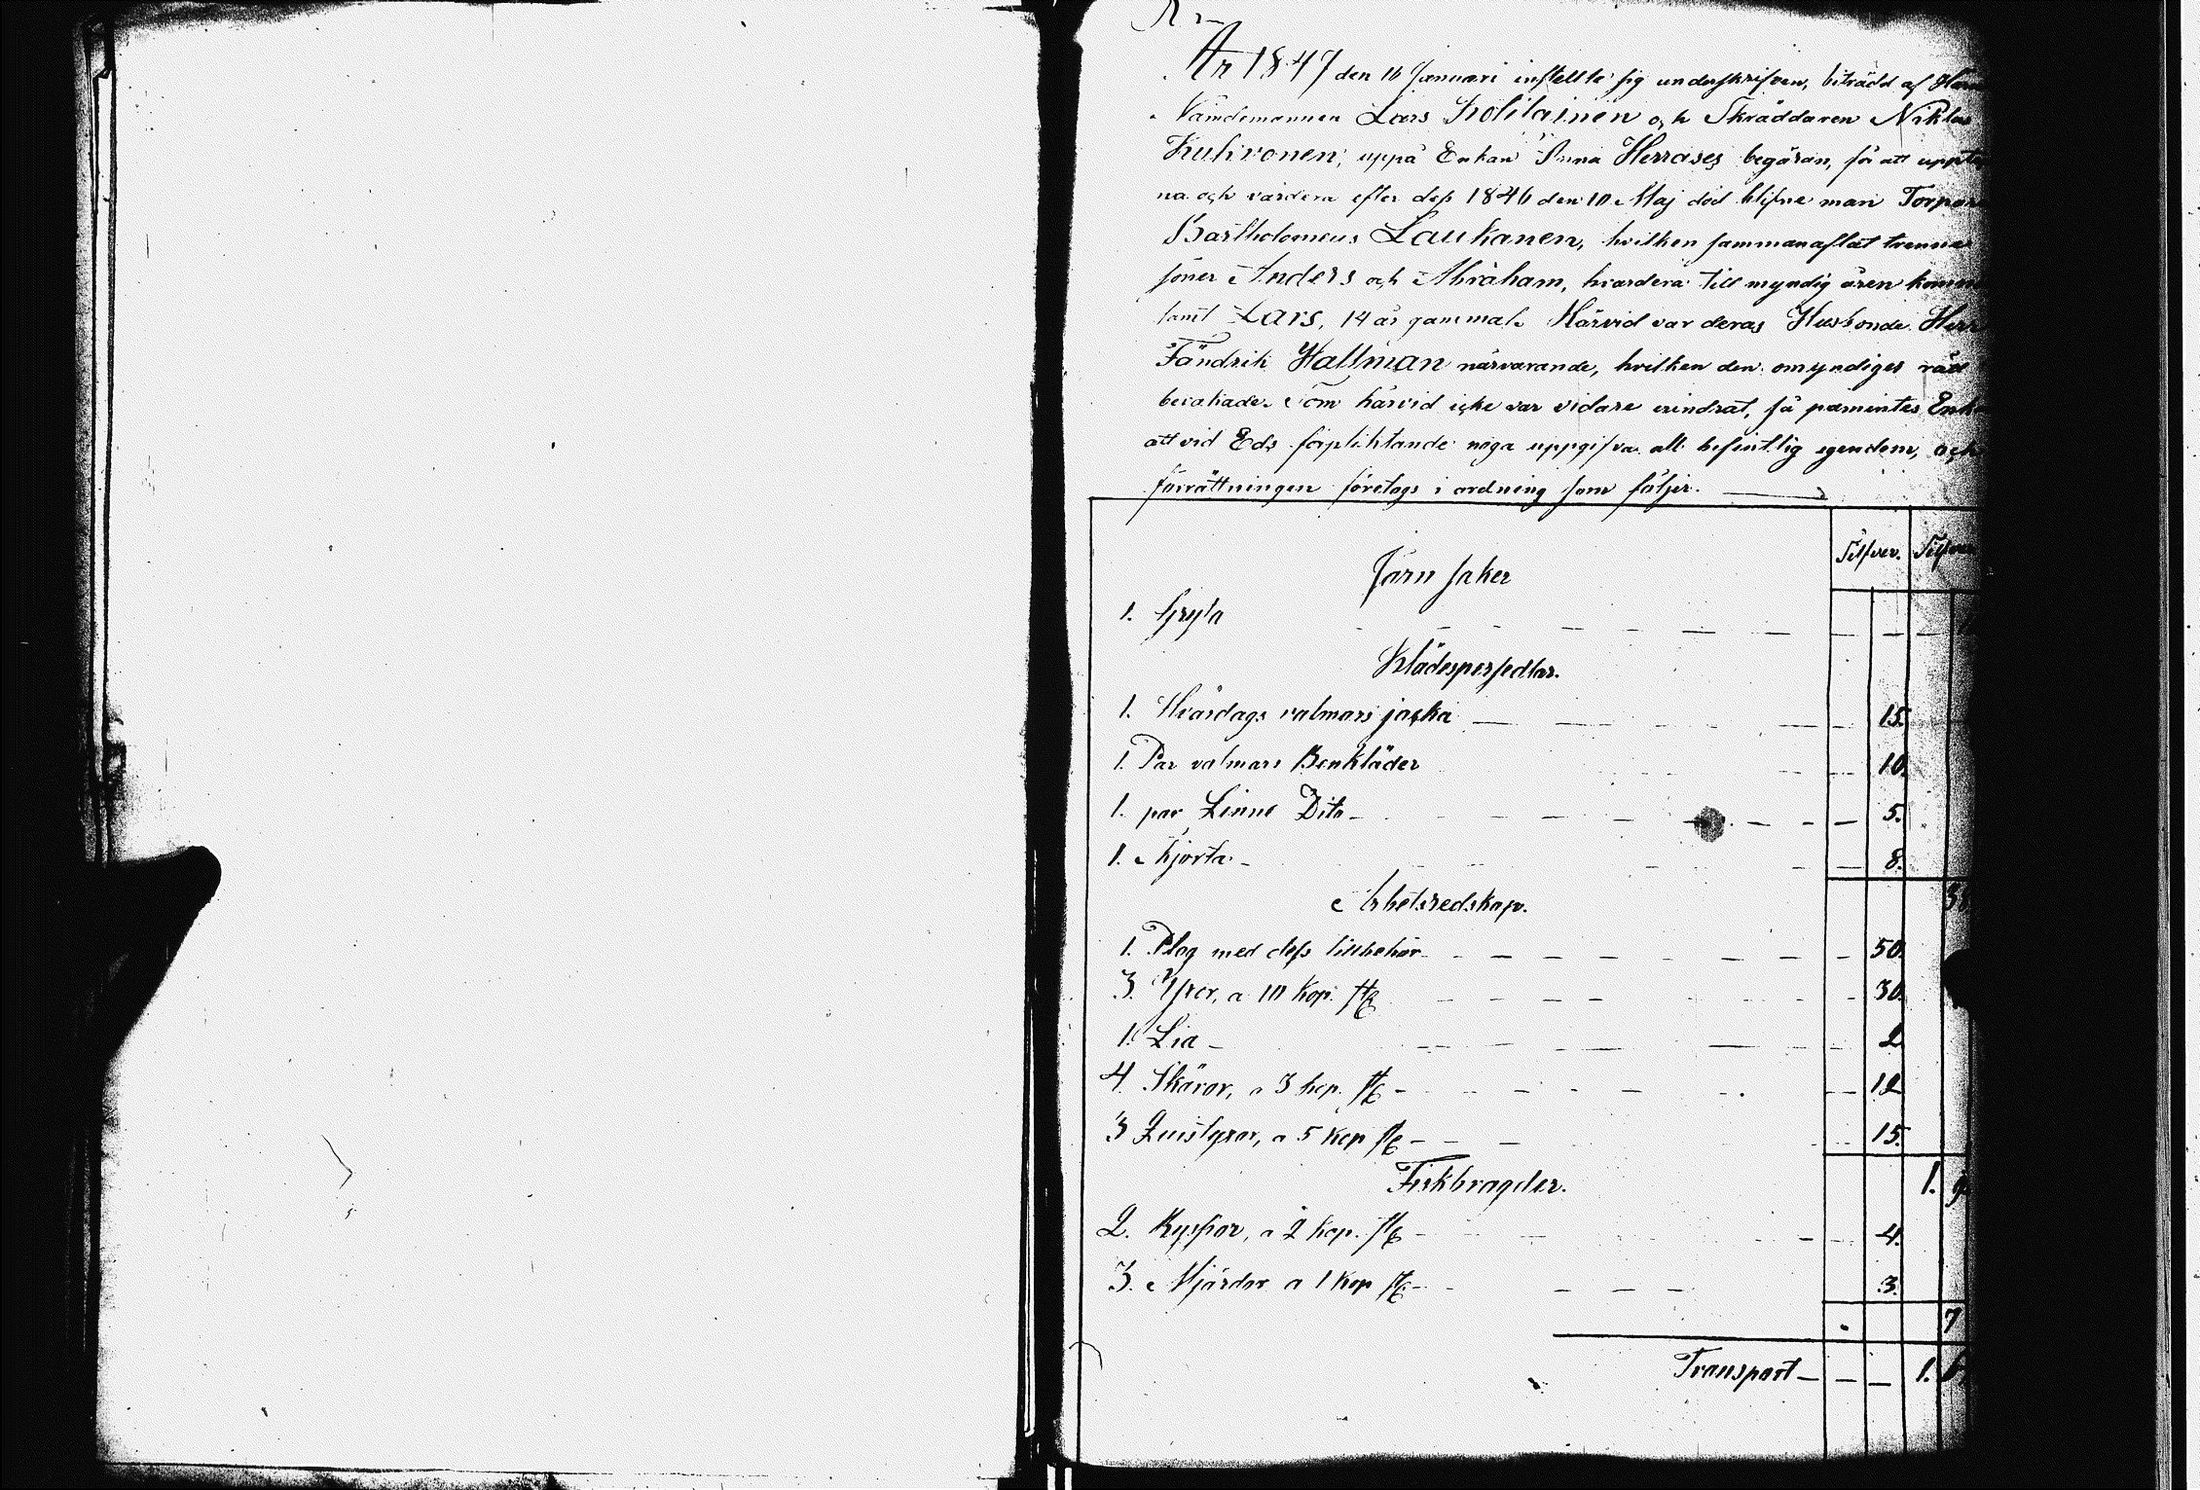 År 1847 den 16 Januari instellte sig underskrifven, biträdd af
Nämdemannen Lars och Skräddaren Niklas
Kuhvonen, uppå Enkan Anna Herrases begäran, för att uppteck
na och värdera efter dess 1846 den 10 Maj död blifne man Torpar
Bartholomeus Laukanen, hvilken sammanaflat trenne
söner Anders och Abraham, hvardera till myndig åren komm
samt Lars, 14 år gammal. Härvid var deras Husbonde Herr
Fändrik Hallman närvarande, hvilken den omyndiges rätt
bevakade. Som härvid icke var vidare erindrat, så påmintes Enk
att vid Eds förpliktande noga uppgifva all befintlig egendom, och
förrättningen företogs i ordning som följer.
Silfver. Silfver
Järn saker
1. Gryta
Klädespersedlar.
1. Hvardags valmars jacka 15.
1. Par valmars Benkläder 10.
1. par Linne Dito 5.
1. skjorta 8.
Arbetsredskap. 3
1. Plog med dess tillbehör 50.
3. Yxor, a 10 kop. st 30.
1. Lia 2
4. Skäror, a 3 kop. st 12
3 Quistyxor, a 5 kop st 15.
Fiskbragder. 1.
2. Ryssjor, a 2 kop. st 4.
3. Mjärdor a 1 kop st 3.
7
Transport 1.